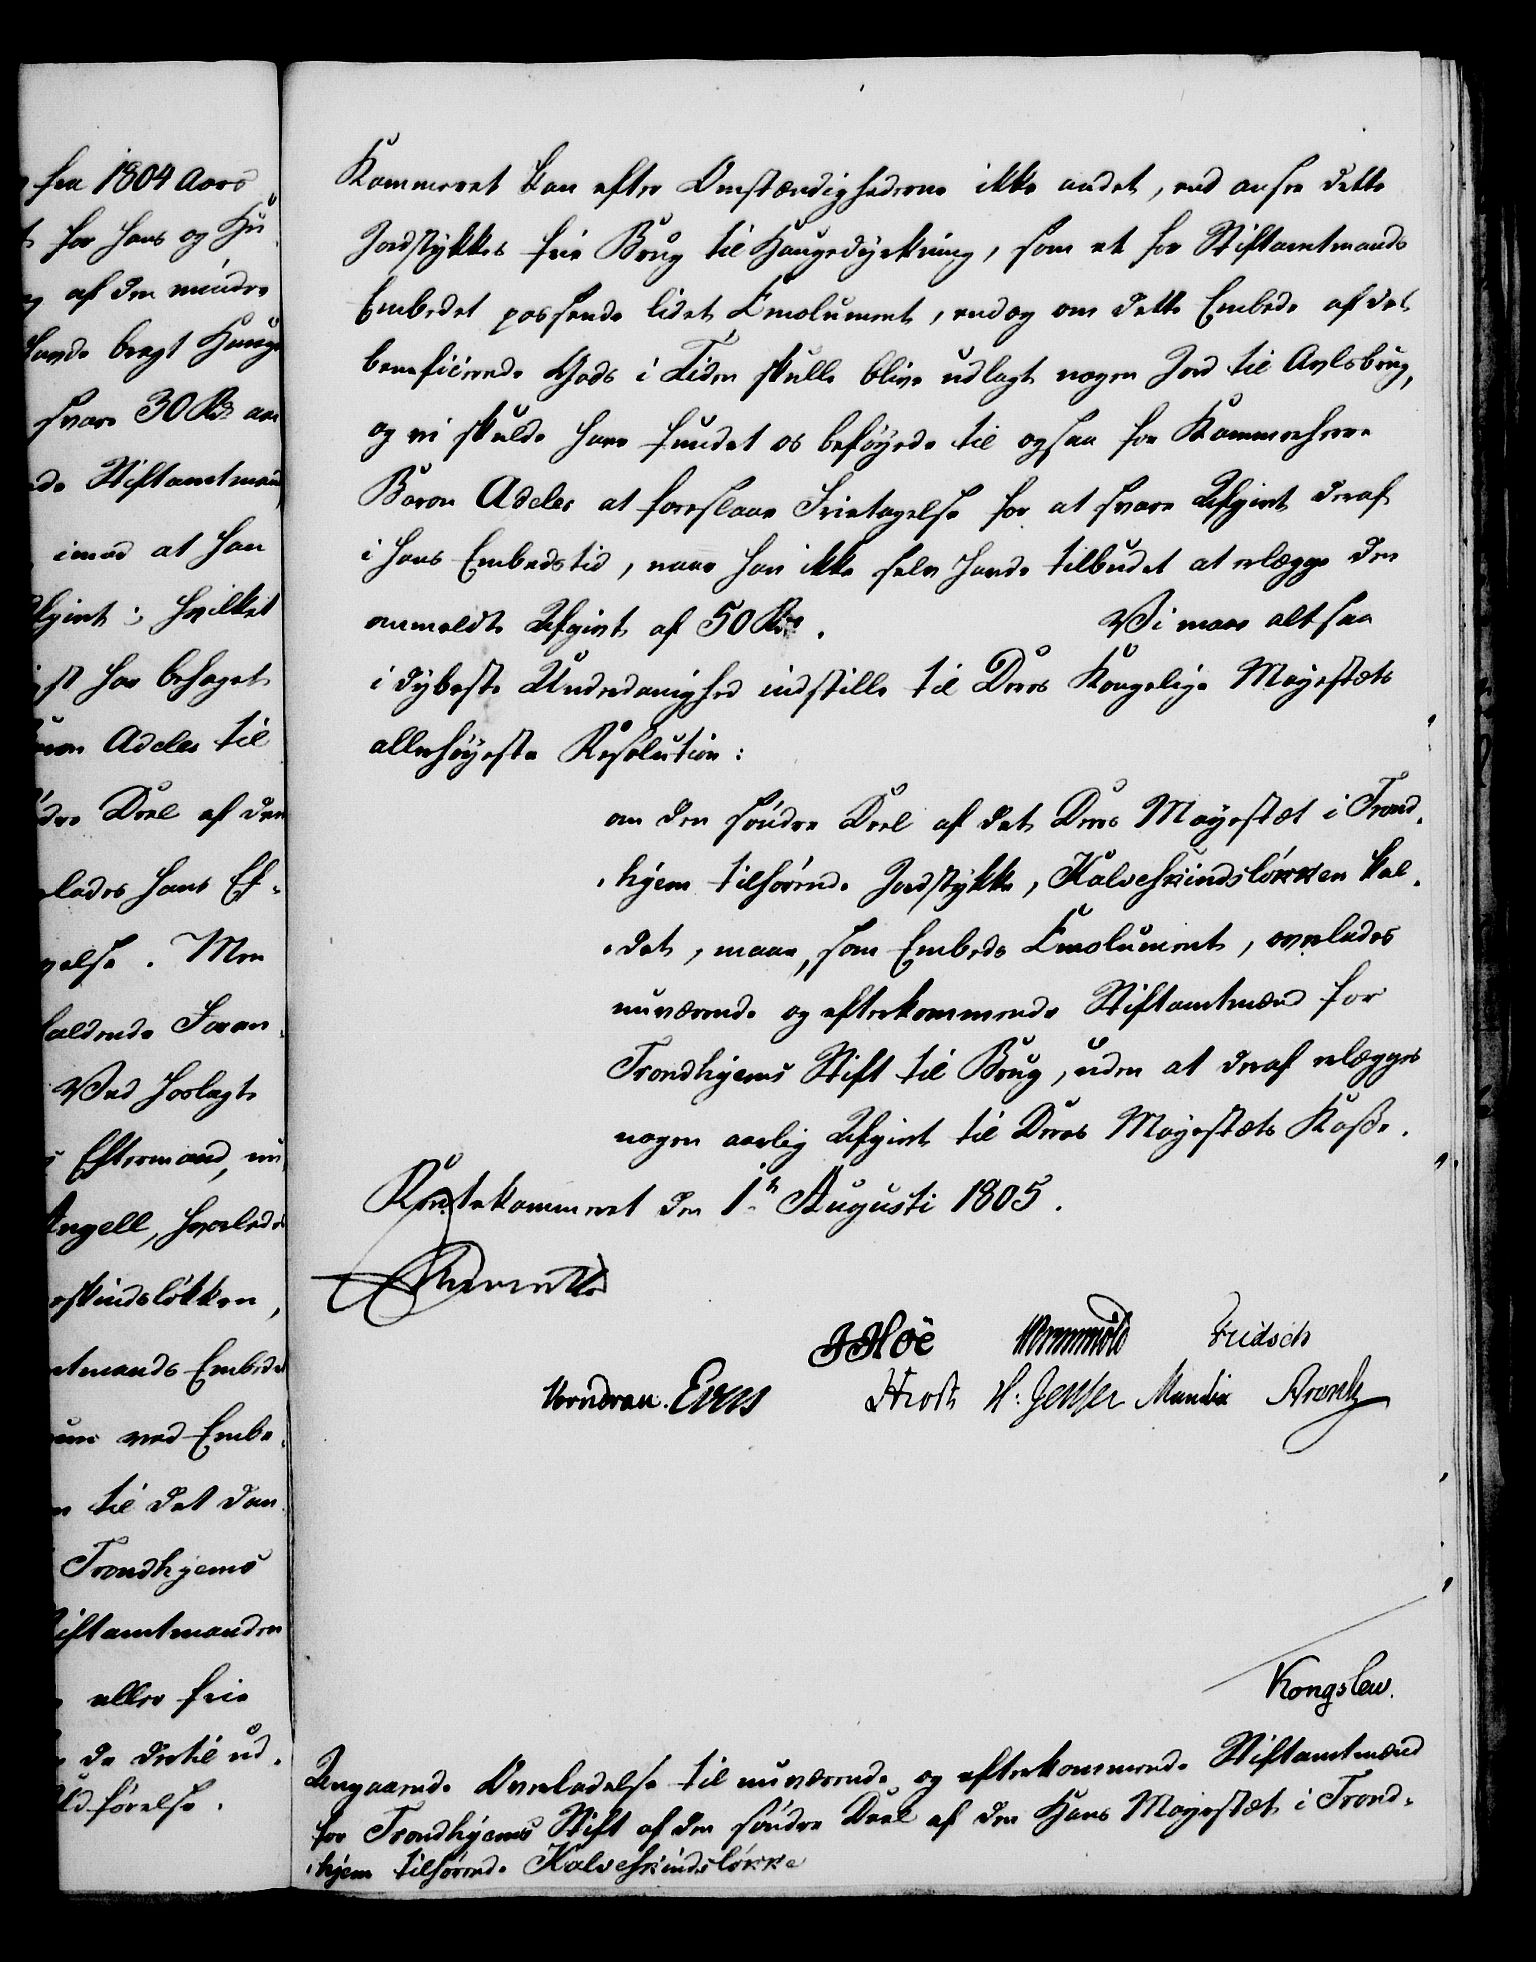 fra 1804 Aars
for hans og Fru
af den mindre
havde bragt Hauge
svare 30 Rdr aar
Stiftamtmand
imod at han
Afgivt; hvilket
har behaget
Adeler til
Deel af den
lades hans Ef-
velse. Men
holdende Foran-
Ved Forlagt
Eftermand, nu
Angell, hvorledes
skindslökken,
tmands Embedet
ved Embe-
til det dan-
Trondhjems
Stiftamtmanden
eller frie
da dertil ud-
ldförelse.
Kammeret kan efter Omstændighederne ikke andet, end ansee dette
Jordstykkes frie Brug til Haugedyrkning, som et for Stiftamtmands
Embedet passende lidet Emolument, endog om dette Embede af det
beneficerede Gods i Tiden skulle blive udlagt nogen Jord til Avlsbrug,
og vi skulde have fundet os beföyede til ogsaa for Kammerherre
Baron Adeler at foreslaae Fritagelse for at svare Afgivt deraf
i hans Embedstid, naar han ikke selv havde tilbudet at erlægge den
anmeldte Afgivt af 50 Rdr. Vi maae altsaa
i dybeste Underdanighed indstille til Deres Kongelige Mayestæts
allerhöyeste Resolution:
om den söndre Deel af det Deres Mayestæt i Trond-
hjem tilhörende Jordstykke, Kalveskindslökken kal-
det, maae, som Embeds Emolument, overlades
nuværende og efterkommende Stiftamtmænd for
Trondhjems Stift til Brug, uden at deraf erlægges
nogen aarlig Afgivt til Deres Mayestæts Kasse.
Rentekammeret den 1te Augusti 1805.
Reventlow
JHöe Wormskiold Fridsch
Vorndran. Evers Hroth H: Jensen Manthey Arentz
Kongslew.
Angaaende Overladelse til nuværende og efterkommende Stiftamtmænd
for Trondhjems Stift af den söndre Deel af den Hans Mayestæt i Trond-
hjem tilhörende Kalveskindslökke